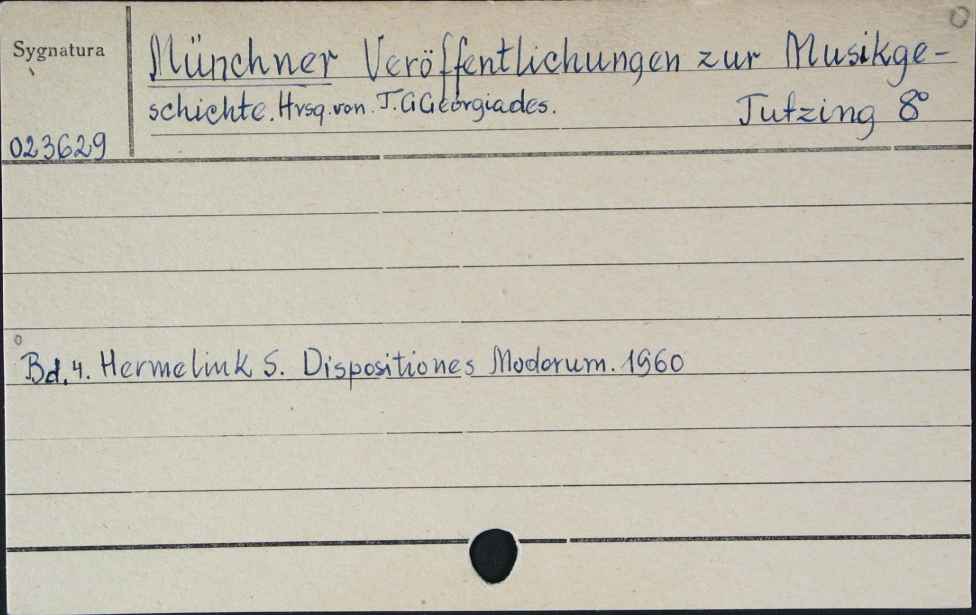 Sygnatura
Münchner Veröffentlichungen zur Musikge-
schichte. Hrsg. von. T. G Georgiades. Tutzing 8°
023629
Bd. 4. Hermelink S. Dispositiones Modorum. 1960